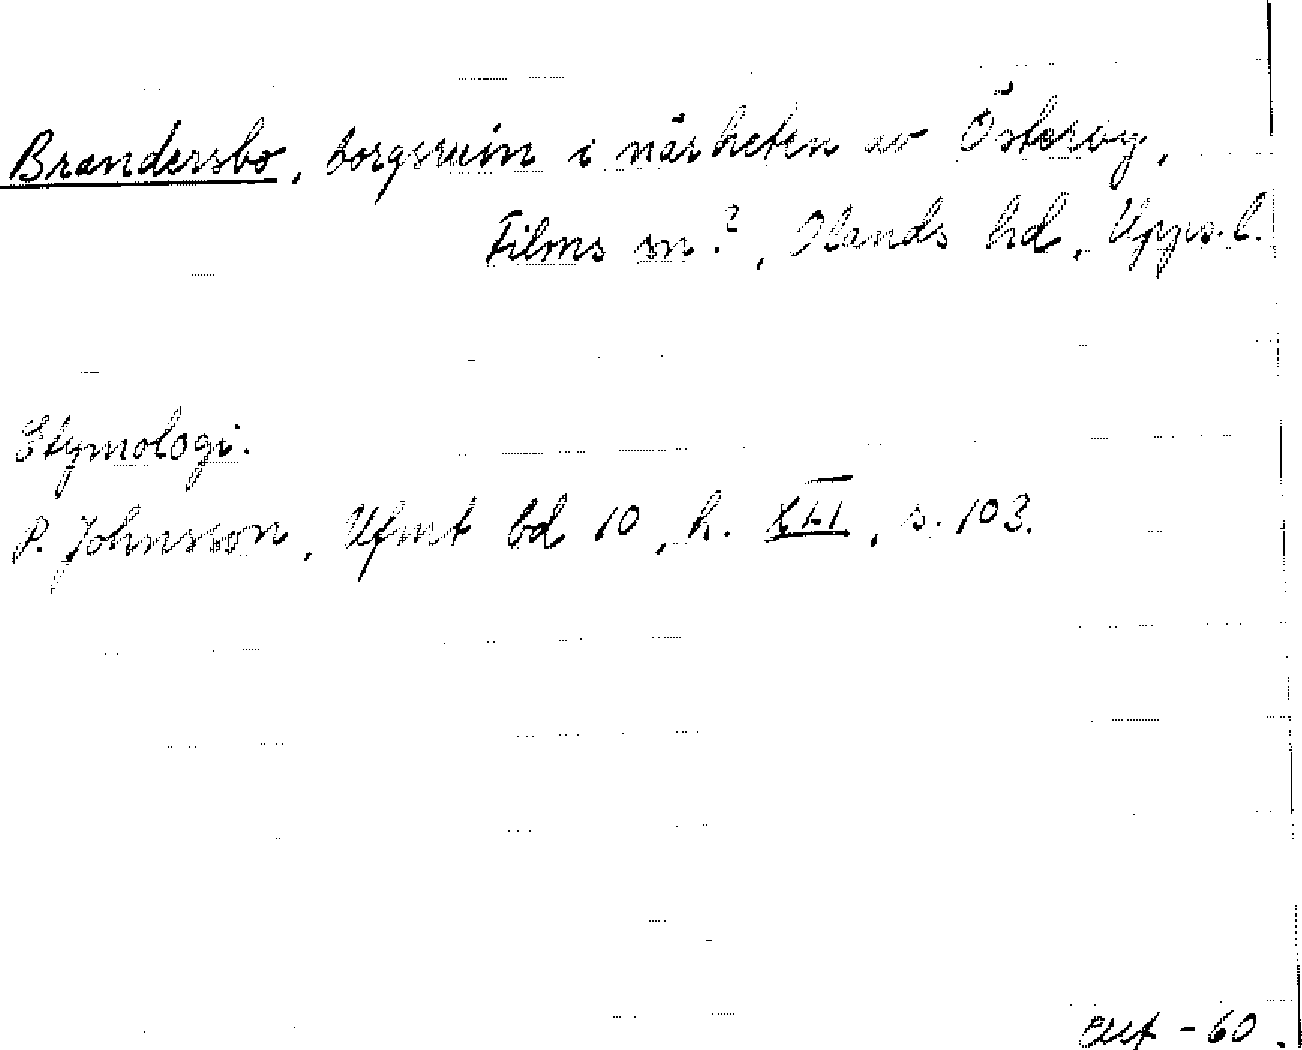 Brandersbo, borgsruin i närheten av Österby,
Films sn?, Olands hd, Upps. l.
Etymologi.
P. Johnsson, Ufmt bd 10, h. XLI, s. 103.
- 60.